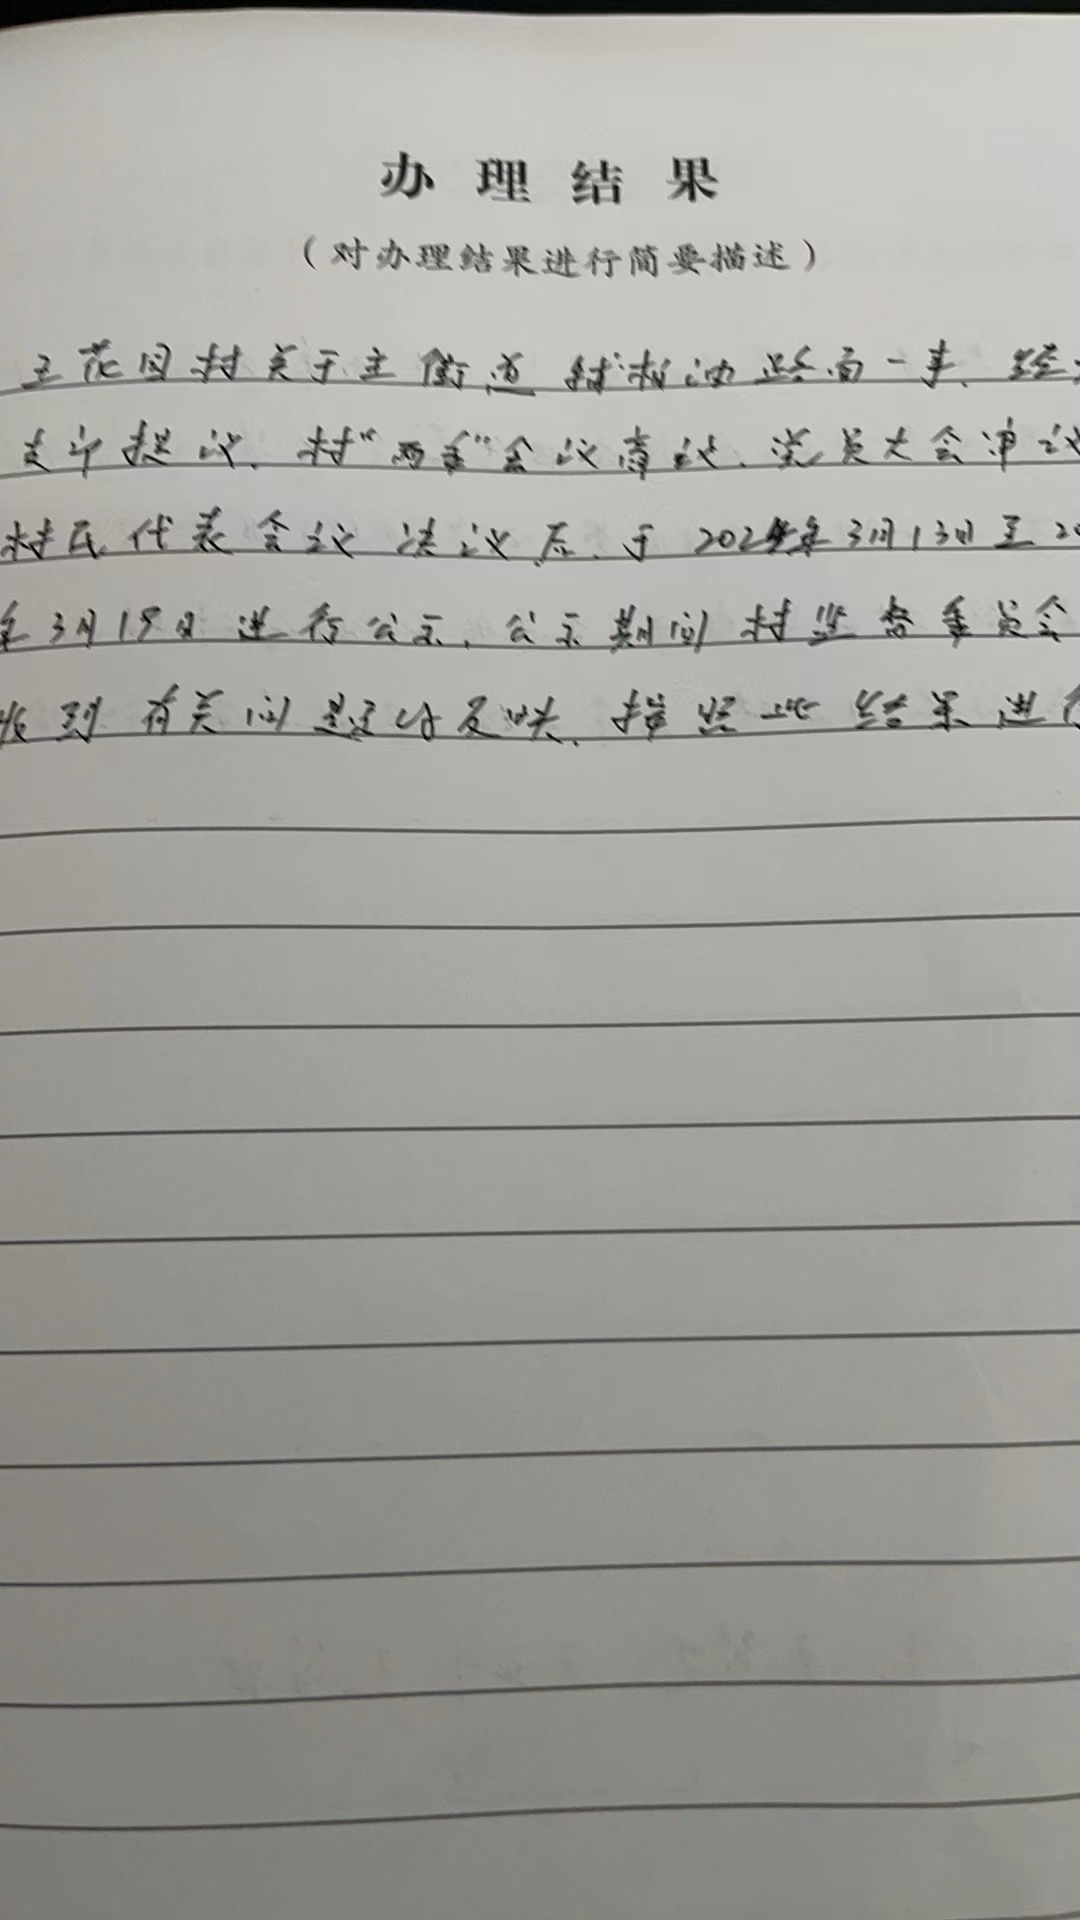 办理结果
（对办理结果进行简要描述）
王花园村关于主街道铺柏油路面一事、经
支部提议、村“两委”会议商议、党员大会审议
村民代表会议决议后、于2024年3月13日至20
年3月19日进行公示、公示期间村监督委员会
收到有关问题的反映、按照此结果进行